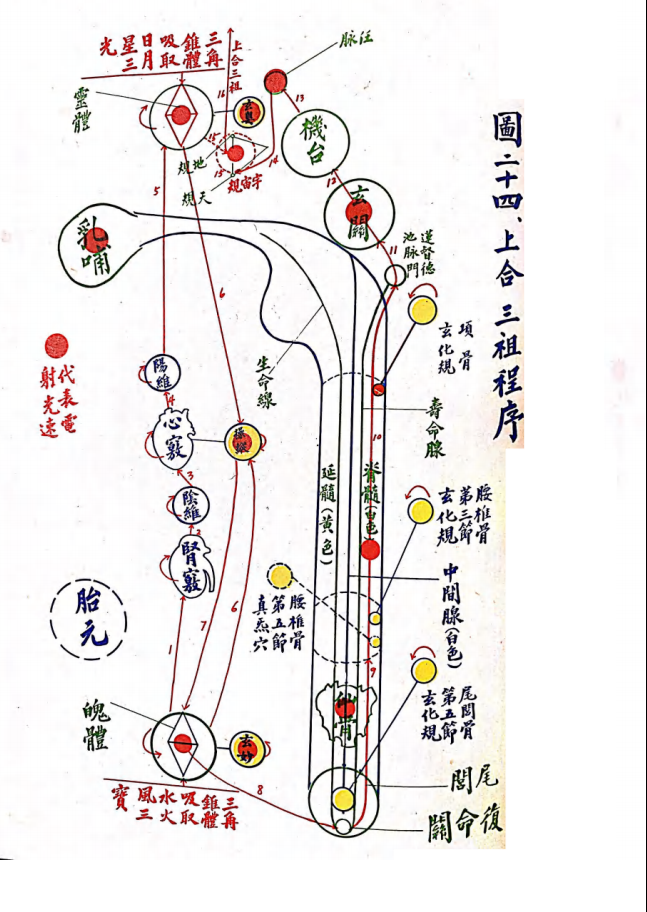 圖二十四、上合三祖程序
三角
錐體
吸取
日月
星三
光
上合三祖
靈體
玄奧
規地
規天
規宙宇
16
15
15
14
13
12
11
機台
玄關
蓮督德
池脉門
乳哺
5
6
項骨
玄化規
生命線
代表電
射光速
陽維
4
心竅
3
陰維
2
腎竅
1
壽命腺
10
延髓(黃色)
脊髓(白色
腰椎骨
第三節
玄化規
腰椎骨
第五節
真炁穴
中間腺(白色)
胎元
7
6
9
尾閭骨
第五節
玄化規
魄體
玄妙
8
三角
錐體
吸取
水火
風三
寶
閭尾
關命復